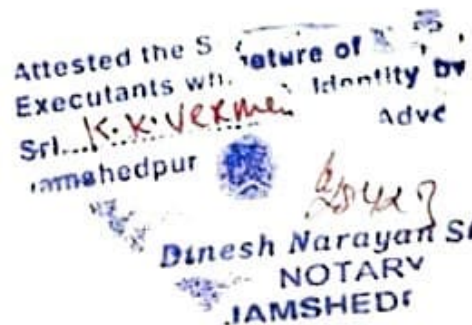 Attested the S ature of
Executants wh. Identity by
Sri....K.K.Verma Advc
Jamshedpur
Dinesh Narayan S
NOTARY
JAMSHED